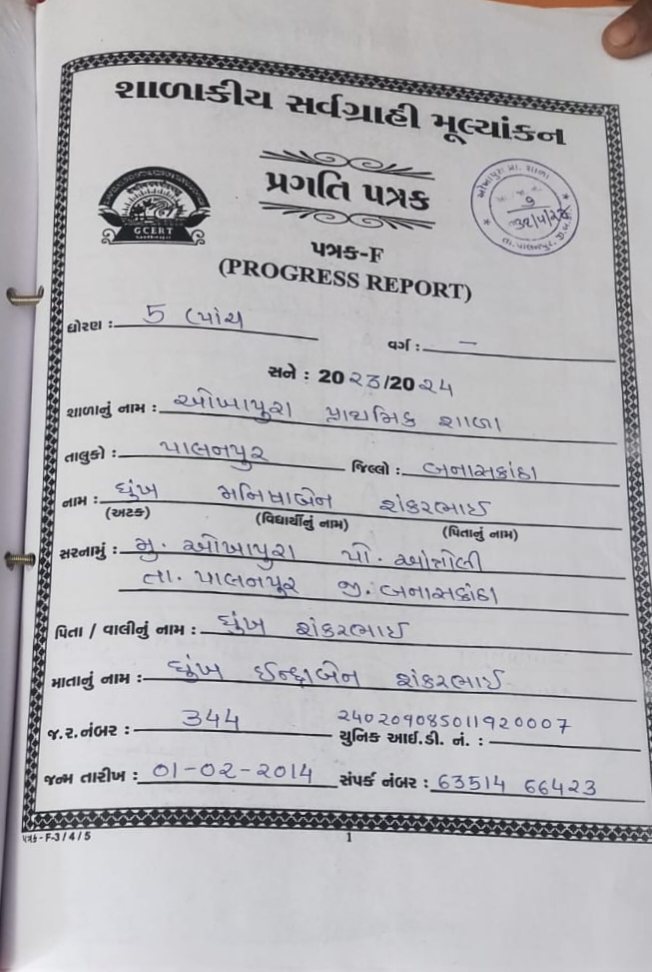 શાળાકીય સર્વગ્રાહી મૂલ્યાંકન
પ્રગતિ પત્રક
GCERT
પત્રક-F
(PROGRESS REPORT)
ધોરણ : 5 (પાંચ
વર્ગ : —
સને : 20 ૨૩/20 ૨૪
શાળાનું નામ : ઓખાપુરા પ્રાથમિક શાળા
તાલુકો : પાલનપુર જિલ્લો : બનાસકાંઠા
નામ : ધુંખ મનિષાબેન શંકરભાઈ
(અટક) (વિદ્યાર્થીનું નામ) (પિતાનું નામ)
સરનામું : મુ. ઓખાપુરા પો.
તા. પાલનપુર જી. બનાસકાંઠા
પિતા / વાલીનું નામ : ધુંખ શંકરભાઈ
માતાનું નામ : ધુંખ ઈન્દ્રાબેન શંકરભાઈ
જ.ર.નંબર : 344 240209085011920007
યુનિક આઈ.ડી. નં. :
જન્મ તારીખ : 01-02-2014 સંપર્ક નંબર : 63514 66423
પત્રક - F-3 / 4 / 5
1